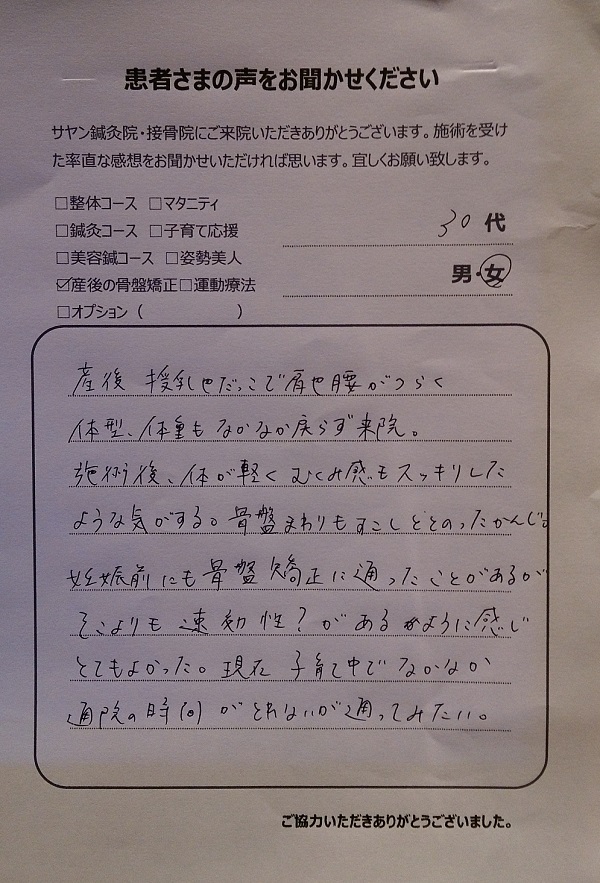 患者さまの声をお聞かせください
サヤン鍼灸院・接骨院にご来院いただきありがとうございます。施術を受け
た率直な感想をお聞かせいただければ思います。宜しくお願い致します。
□整体コース □マタニティ
□鍼灸コース □子育て応援
30 代
□美容鍼コース □姿勢美人
男・女
☑産後の骨盤矯正□運動療法
□オプション（　　　　　　）
産後 授乳やだっこで肩や腰がつらく
体型、体重もなかなか戻らず来院。
施術後、体が軽く むくみ感もスッキリした
ような気がする。骨盤まわりもすこしととのったかんじ。
妊娠前にも骨盤矯正に通ったことがあるが
そこよりも速効性？があるように感じ
とてもよかった。現在 子育て中でなかなか
通院の時間がとれないが通ってみたい。
ご協力いただきありがとうございました。